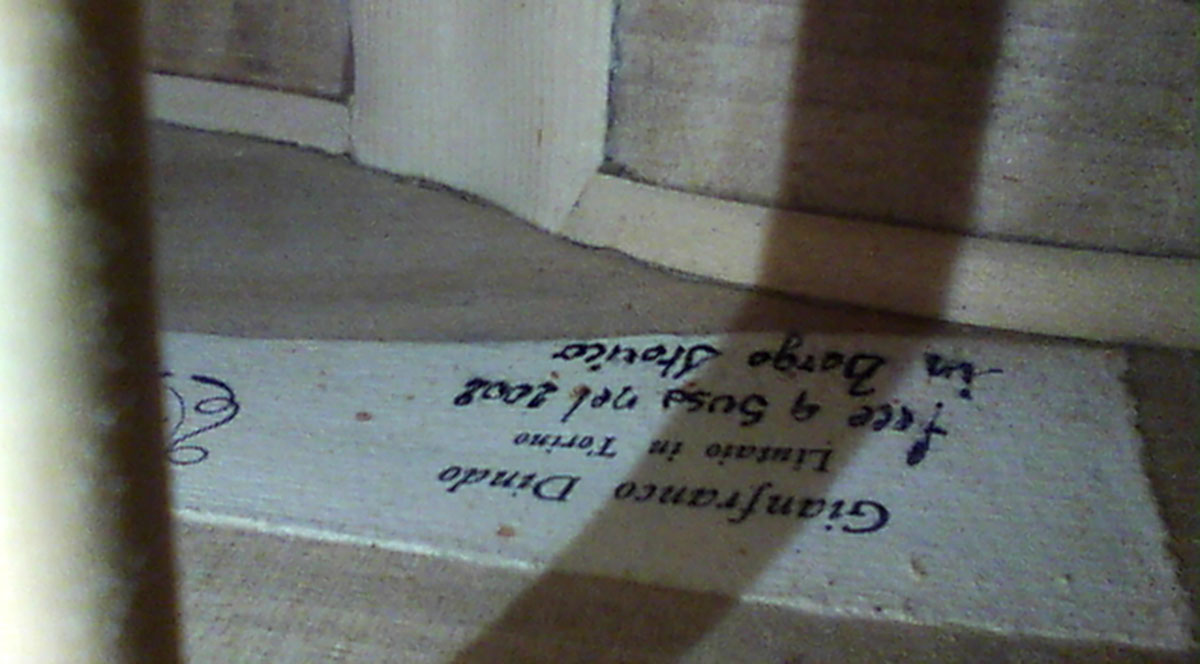 Gianfranco Dindo
Liutaio in Torino
fece a Susa nel 2002
in Borgo Storico